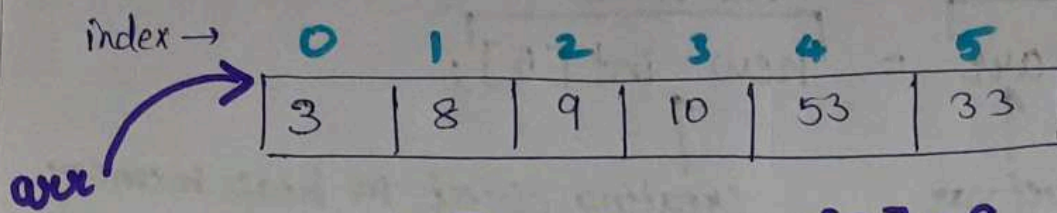 index → 0 1 2 3 4 5
3 8 9 10 53 33
arr